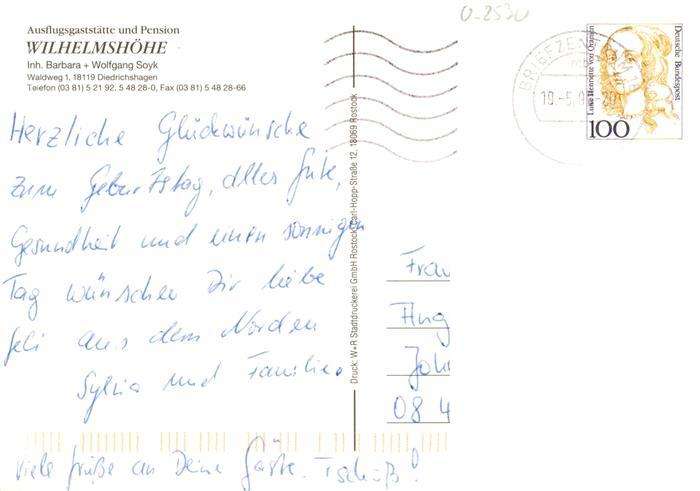 Ausflugsgaststätte und Pension
WILHELMSHÖHE
Inh. Barbara + Wolfgang Soyk
Waldweg 1, 18119 Diedrichshagen
Telefon (03 81) 5 21 92, 5 48 28-0, Fax (03 81) 5 48 28-66
Herzliche Glückwünsche
zum Geburtstag, alles Gute,
Gesundheit und einen sonnigen
Tag wünschen Dir liebe
aus dem Norden
Sylvia und Familie.
viele Grüße an Deine Gäste. Tschüß!
Druck: W+R Stadtdruckerei GmbH Rostock, Carl-Hopp-Straße 12, 18069 Rostock
0-2530
BRIEFZEN
19.-5.
Deutsche Bundespost
Luise Henriette von Oranien
100
Frau
Joh
08 4